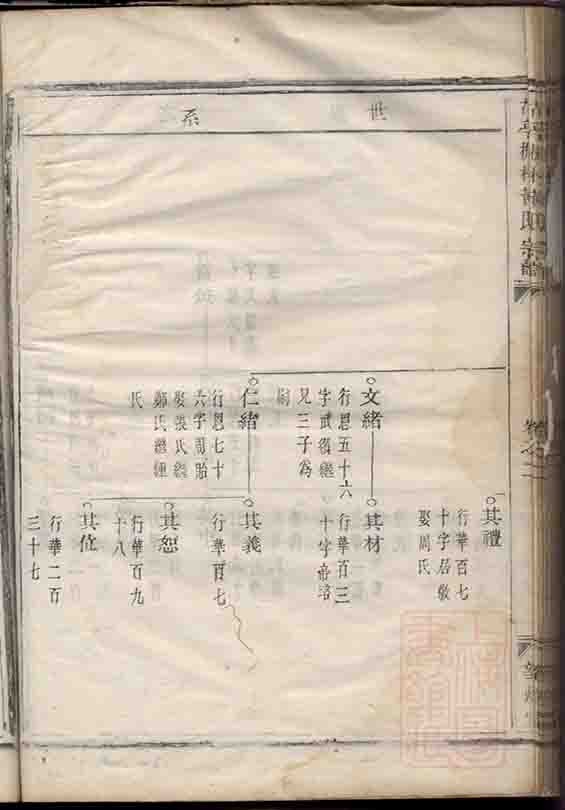 世系
其禮
行華百七
十字居敬
娶周氏
文緒
行恩五十六
字武須繼
兄三子為
嗣
其材
行華百三
十字帝培
仁緒
行恩七十
六字周貽
娶張氏繼
鄭氏繼鍾
氏
其義
行華百七
其恕
行華百九
十八
其位
行華二百
三十七
宗譜